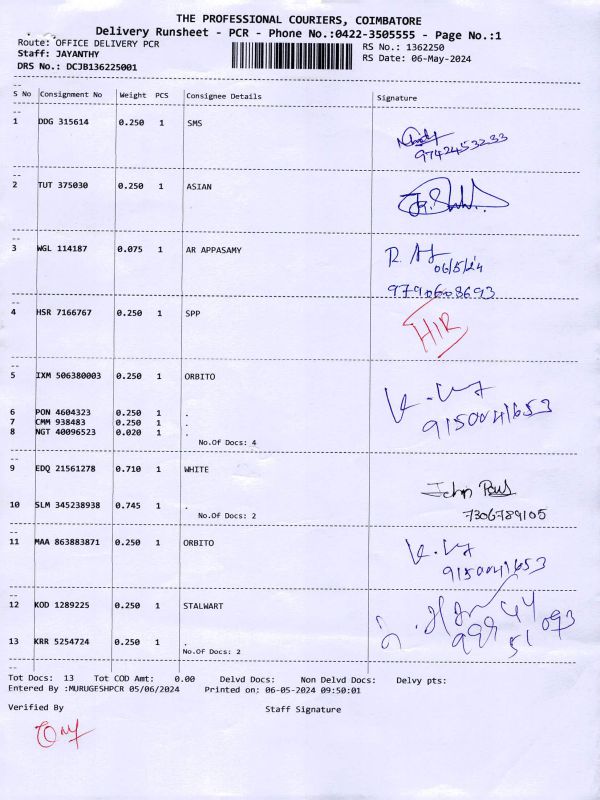 THE PROFESSIONAL COURIERS, COIMBATORE
Delivery Runsheet - PCR - Phone No.:0422-3505555 - Page No.:1
Route: OFFICE DELIVERY PCR
RS No.: 1362250
Staff: JAYANTHY
RS Date: 06-May-2024
DRS No.: DCJB136225001
S No Consignment No Weight PCS Consignee Details Signature
1 DDG 315614 0.250 1 SMS
9742453233
2 TUT 375030 0.250 1 ASIAN
3 WGL 114187 0.075 1 AR APPASAMY
06/5/24
9790608693
4 HSR 7166767 0.250 1 SPP
HIR
5 IXM 506380003 0.250 1 ORBITO
6 PON 4604323 0.250 1 .
7 CMM 938483 0.250 1 .
8 NGT 40096523 0.020 1 .
9150041653
No.Of Docs: 4
9 EDQ 21561278 0.710 1 WHITE
John Paul
10 SLM 345238938 0.745 1 .
7306789105
No.Of Docs: 2
11 MAA 863883871 0.250 1 ORBITO
9150041653
12 KOD 1289225 0.250 1 STALWART
13 KRR 5254724 0.250 1 .
No.Of Docs: 2
Tot Docs: 13 Tot COD Amt: 0.00 Delvd Docs: Non Delvd Docs: Delvy pts:
Entered By :MURUGESHPCR 05/06/2024 Printed on: 06-05-2024 09:50:01
Verified By Staff Signature